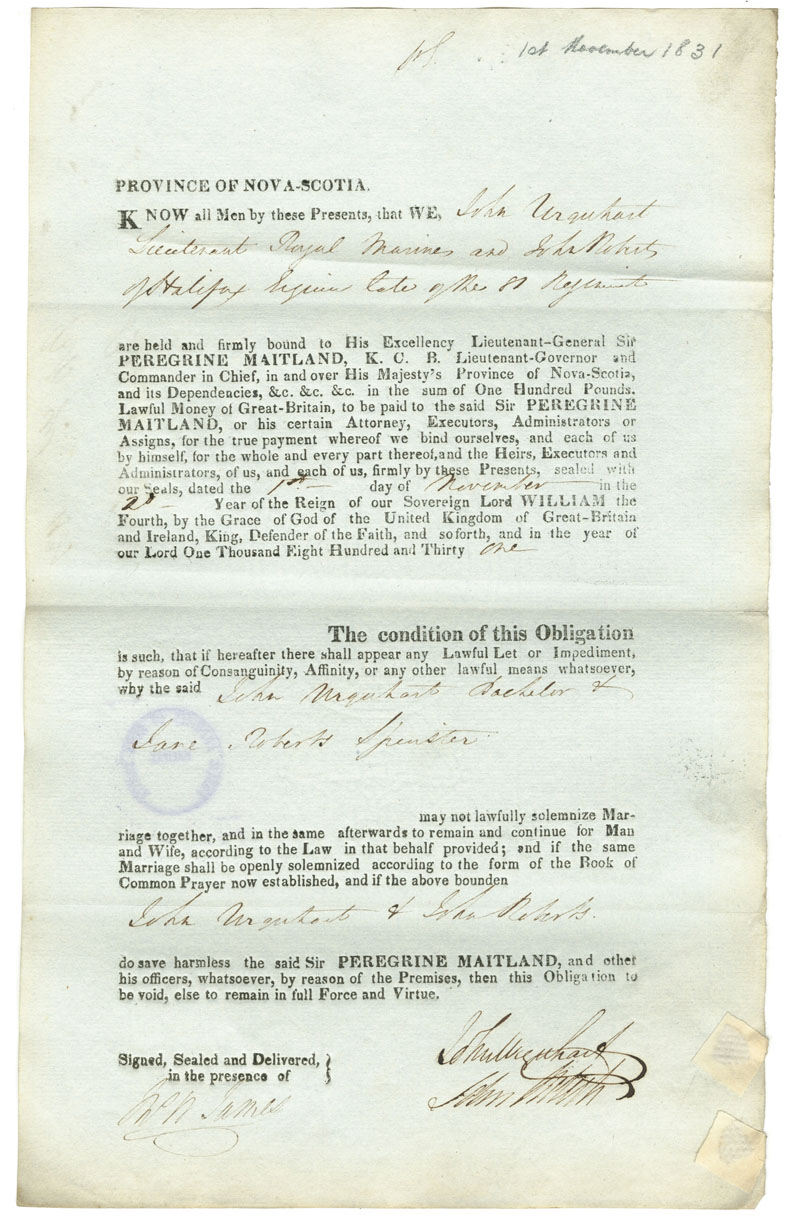 1st November 1831
PROVINCE OF NOVA-SCOTIA.
KNOW all Men by these Presents, that WE, John Urquhart
Lieutenant Royal Marines and John Roberts
of Halifax late of the 81 Regiment
are held and firmly bound to His Excellency Lieutenant-General Sir
PEREGRINE MAITLAND, K. C. B. Lieutenant-Governor and
Commander in Chief, in and over His Majesty's Province of Nova-Scotia,
and its Dependencies, &c. &c. &c. in the sum of One Hundred Pounds.
Lawful Money of Great-Britain, to be paid to the said Sir PEREGRINE
MAITLAND, or his certain Attorney, Executors, Administrators or
Assigns, for the true payment whereof we bind ourselves, and each of us
by himself, for the whole and every part thereof, and the Heirs, Executors and
Administrators, of us, and each of us, firmly by these Presents, sealed with
our Seals, dated the 1st day of November in the
2d Year of the Reign of our Sovereign Lord WILLIAM the
Fourth, by the Grace of God of the United Kingdom of Great-Britain
and Ireland, King, Defender of the Faith, and soforth, and in the year of
our Lord One Thousand Eight Hundred and Thirty one
The condition of this Obligation
is such, that if hereafter there shall appear any Lawful Let or Impediment,
by reason of Consanguinity, Affinity, or any other lawful means whatsoever,
why the said John Urquhart Bachelor &
Jane Roberts Spinster
may not lawfully solemnize Mar-
riage together, and in the same afterwards to remain and continue for Man
and Wife, according to the Law in that behalf provided; and if the same
Marriage shall be openly solemnized according to the form of the Book of
Common Prayer now established, and if the above bounden
John Urquhart & John Roberts.
do save harmless the said Sir PEREGRINE MAITLAND, and other
his officers, whatsoever, by reason of the Premises, then this Obligation to
be void, else to remain in full Force and Virtue.
John Urquhart
Signed, Sealed and Delivered, }
in the presence of
John Roberts
James